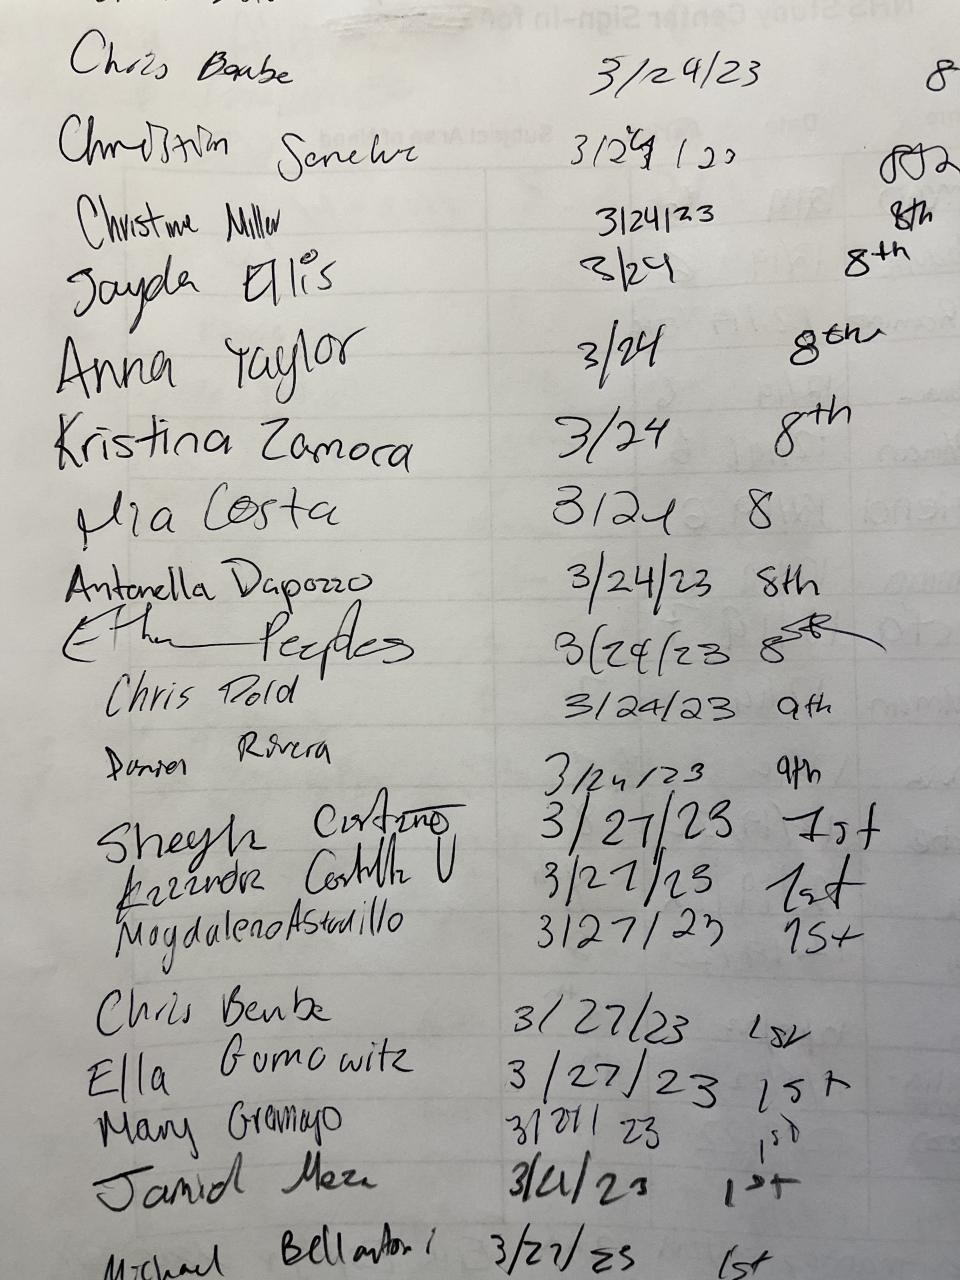 Chris Benbe 3/24/23 8
Sanchez 3/24/23
Christine Miller 3/24/23 8th
Jayda Ellis 3/24 8th
Anna Taylor 3/24 8th
Kristina Zamora 3/24 8th
Mia Costa 3/24 8
Antonella Dapozzo 3/24/23 8th
Ethan Peeples 3/24/23 8th
Chris Dold 3/24/23 9th
Rivera 3/24/23 9th
3/27/23 1st
3/27/23 1st
Magdaleno Astudillo 3/27/23 1st
Chris Benbe 3/27/23 1st
Ella Gomowitz 3/27/23 1st
Mary Gramayo 3/27/23 1st
Meza 1st
Michael Bellantoni 3/27/23 1st